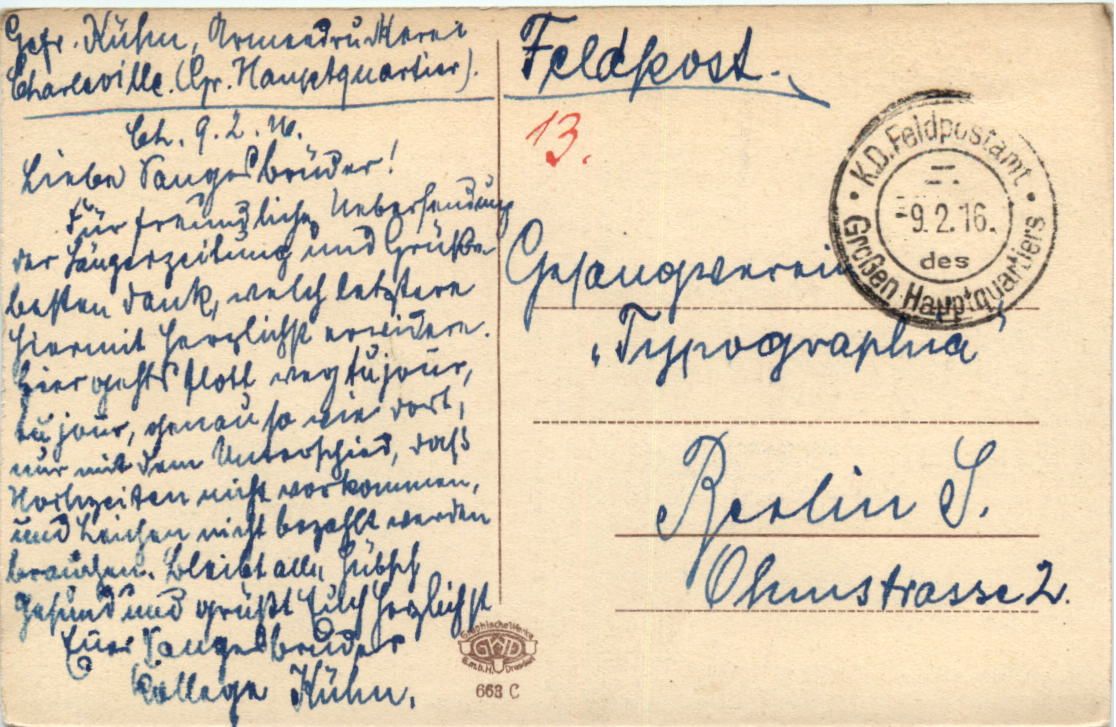 Gefr. Kühn, Armeedruckerei
Charleville. (Gr. Hauptquartier).
Ch. 9.2.16.
Liebe Sangesbrüder!
Für freundliche Uebersendung
der Sängerzeitung und Grüße
besten Dank, welch letztere
hiermit herzlichst erwidere.
Hier gehts flott weg tujour,
tujour, genau so wie dort,
nur mit dem Unterschied, daß
Hochzeiten nicht vorkommen,
und Leichen nicht bezahlt werden
brauchen. Bleibt alle hübsch
gesund und grüßt Euch herzlichst
Euer Sangesbruder
Kollege Kühn.
Feldpost.
13.
K.D. Feldpostamt
-9.2.16.
des
Großen Hauptquartiers
Gesangverein
"Typographia"
Berlin S.
Ohmstrasse 2.
Graphische Werke
GWD
G.m.b.H. Dresden
663 C